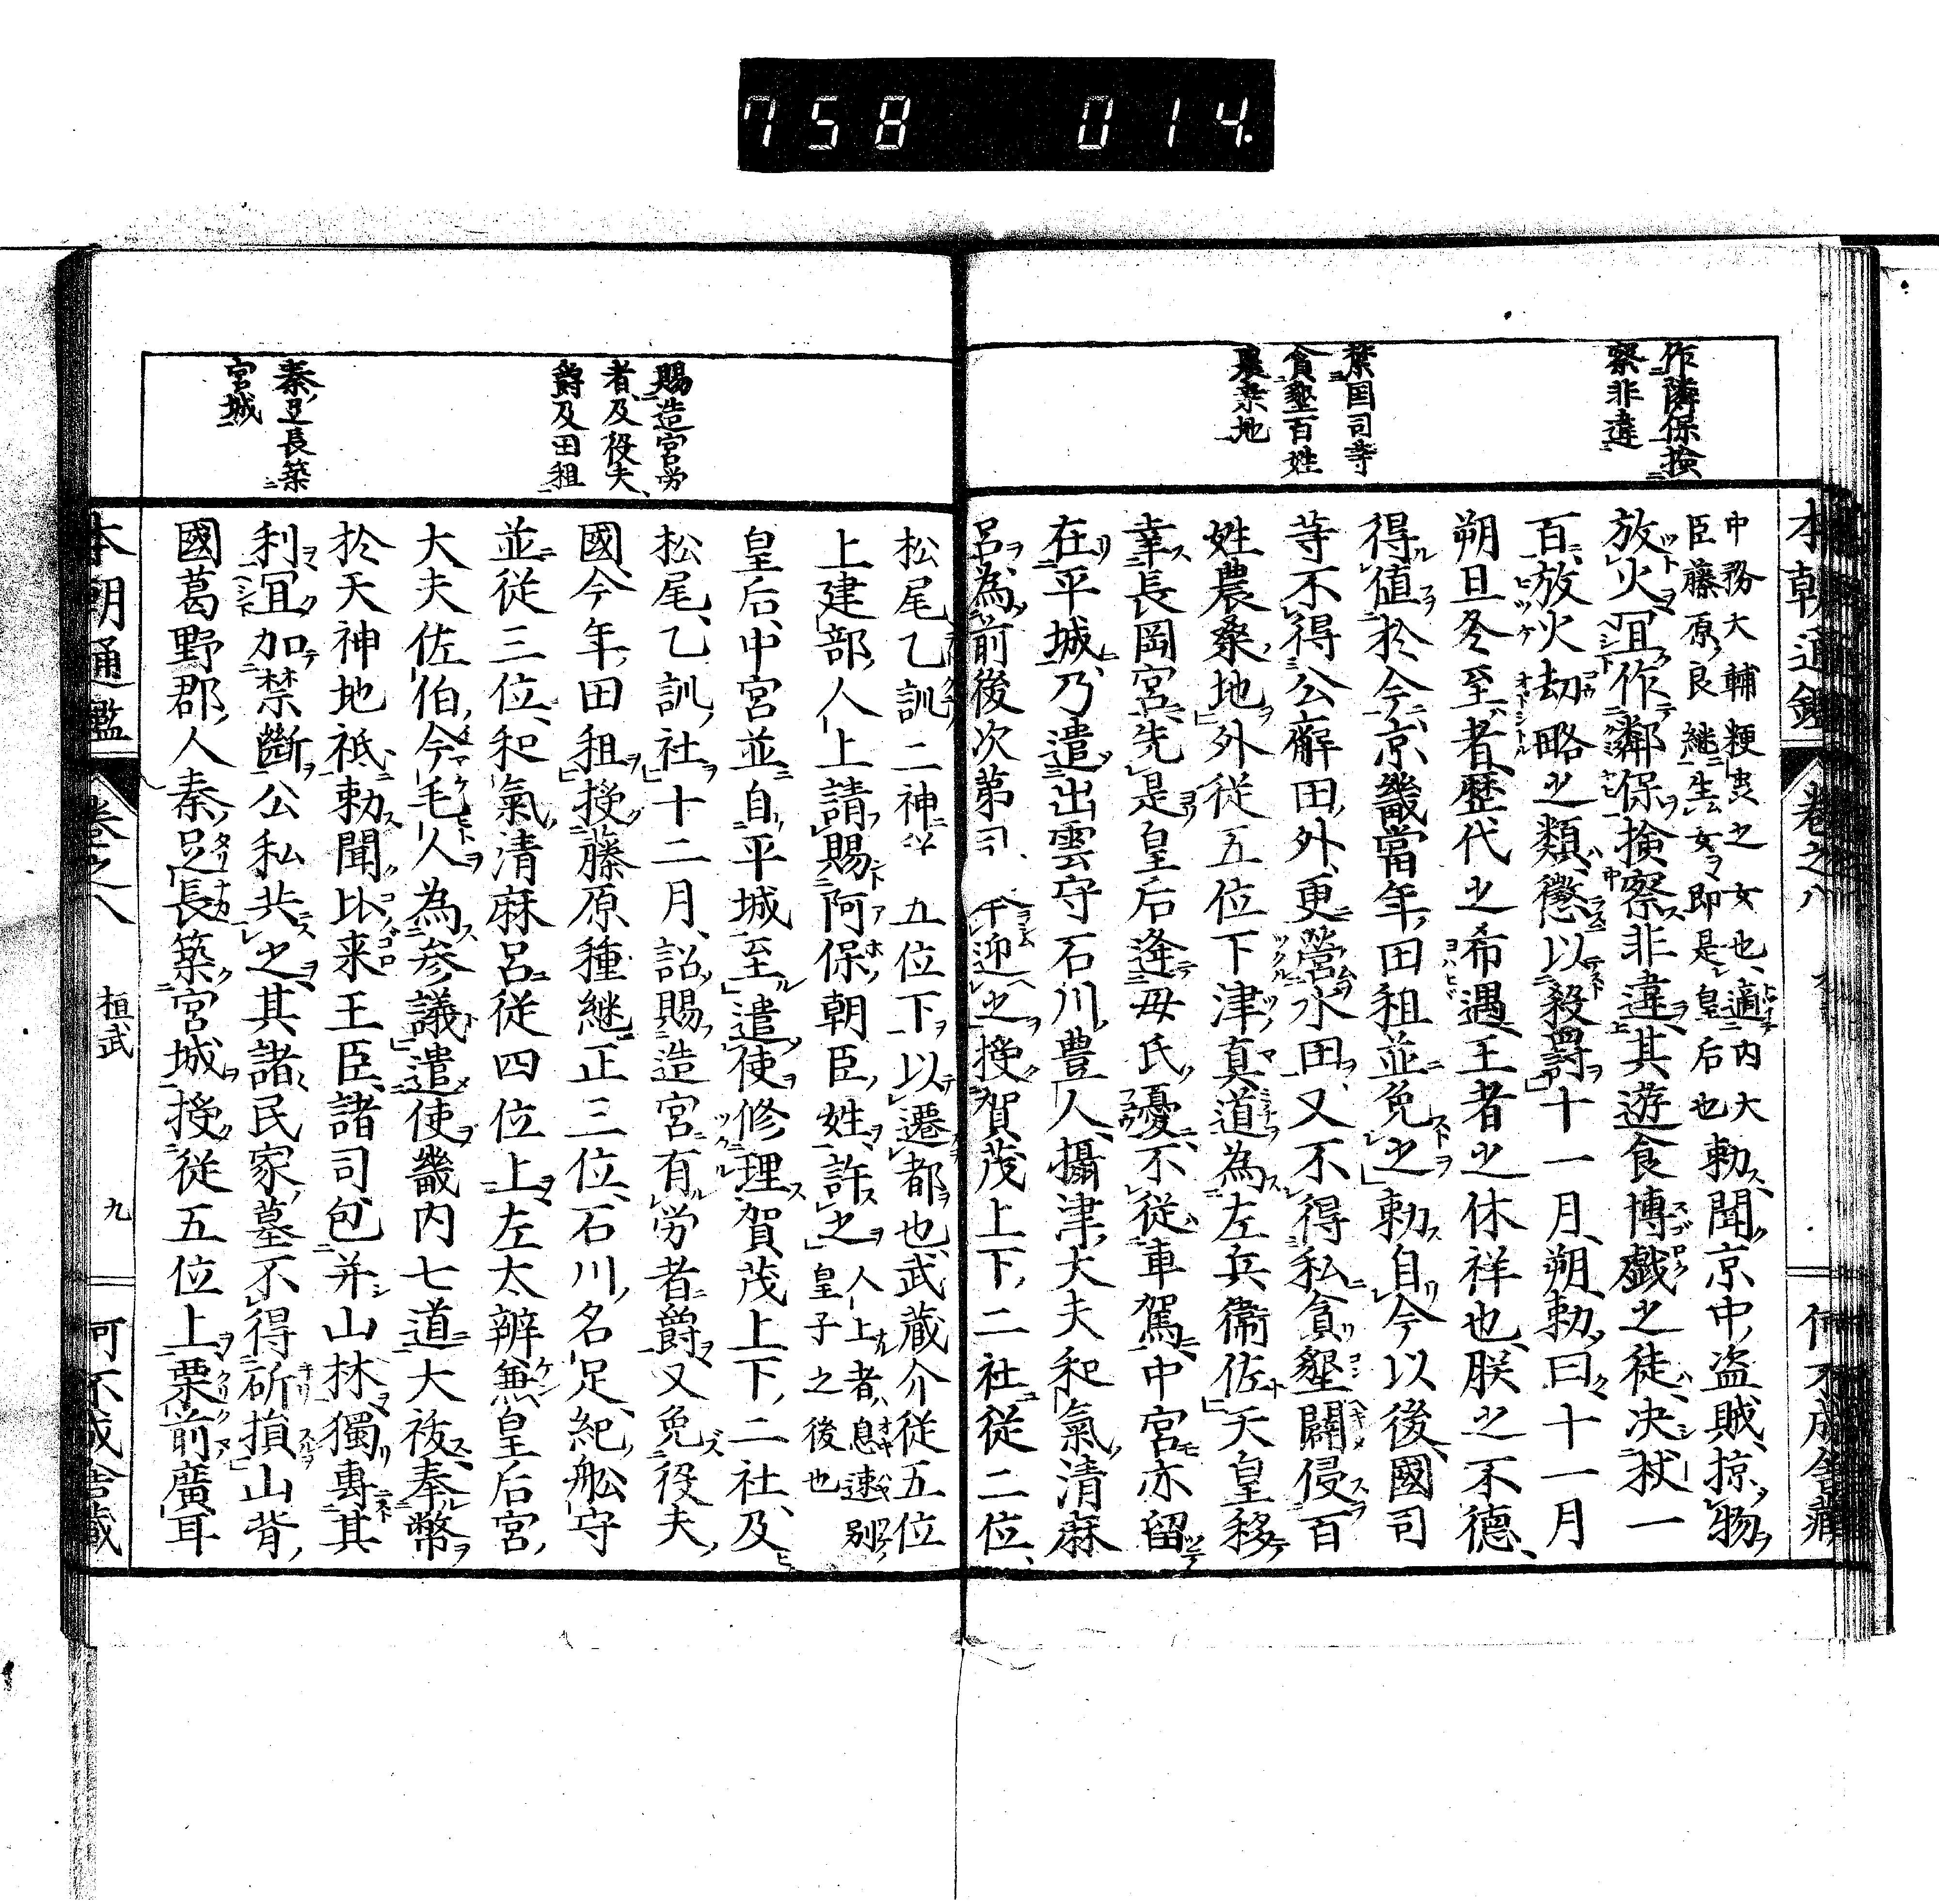 758 014
作隣保撿
察非違
禁国司等
貪墾百姓
農桒地
本朝通鑑 卷之八
何不成舎藏
中務大輔粳虫之女也適内大
臣藤原良継生女即是皇后也
勅聞京中盗賊掠物
放火冝作鄰保撿察非違其遊食博戲之徒决杖一
百放火劫略之類懲以殺罸十一月朔勅曰十一月
朔旦冬至者歴代之希遇王者之休祥也朕之不德
得値於今京畿當年田租並免之勅自今以後國司
等不得公廨田外更營水田又不得私貪墾闢侵百
姓農桑地外従五位下津真道為左兵衞佐天皇移
幸長岡宮先是皇后逢母氏憂不従車駕中宮亦留
在平城乃遣出雲守石川豊人攝津大夫和氣清麻
呂為前後次第司 迎之授賀茂上下二社従二位
賜造宮労
者及役夫
爵及田租
秦足長築
宮城
松尾乙訓二神 五位下以遷都也武蔵介従五位
上建部人上請賜阿保朝臣姓許之
人上者息速別
皇子之後也
皇后中宮並自平城至遣使修理賀茂上下二社及
松尾乙訓社十二月詔賜造宮有労者爵又免役夫
國今年田租授藤原種継正三位石川名足紀舩守
並従三位和氣清麻呂従四位上左大辨兼皇后宮
大夫佐伯今毛人為参議遣使畿内七道大祓奉幣
於天神地祇勅聞比来王臣諸司包并山林獨專其
利冝加禁斷公私共之其諸民家墓不得斫損山背
國葛野郡人秦足長築宮城授従五位上栗前廣耳
本朝通鑑 卷之八 桓武 九 何不成舎藏